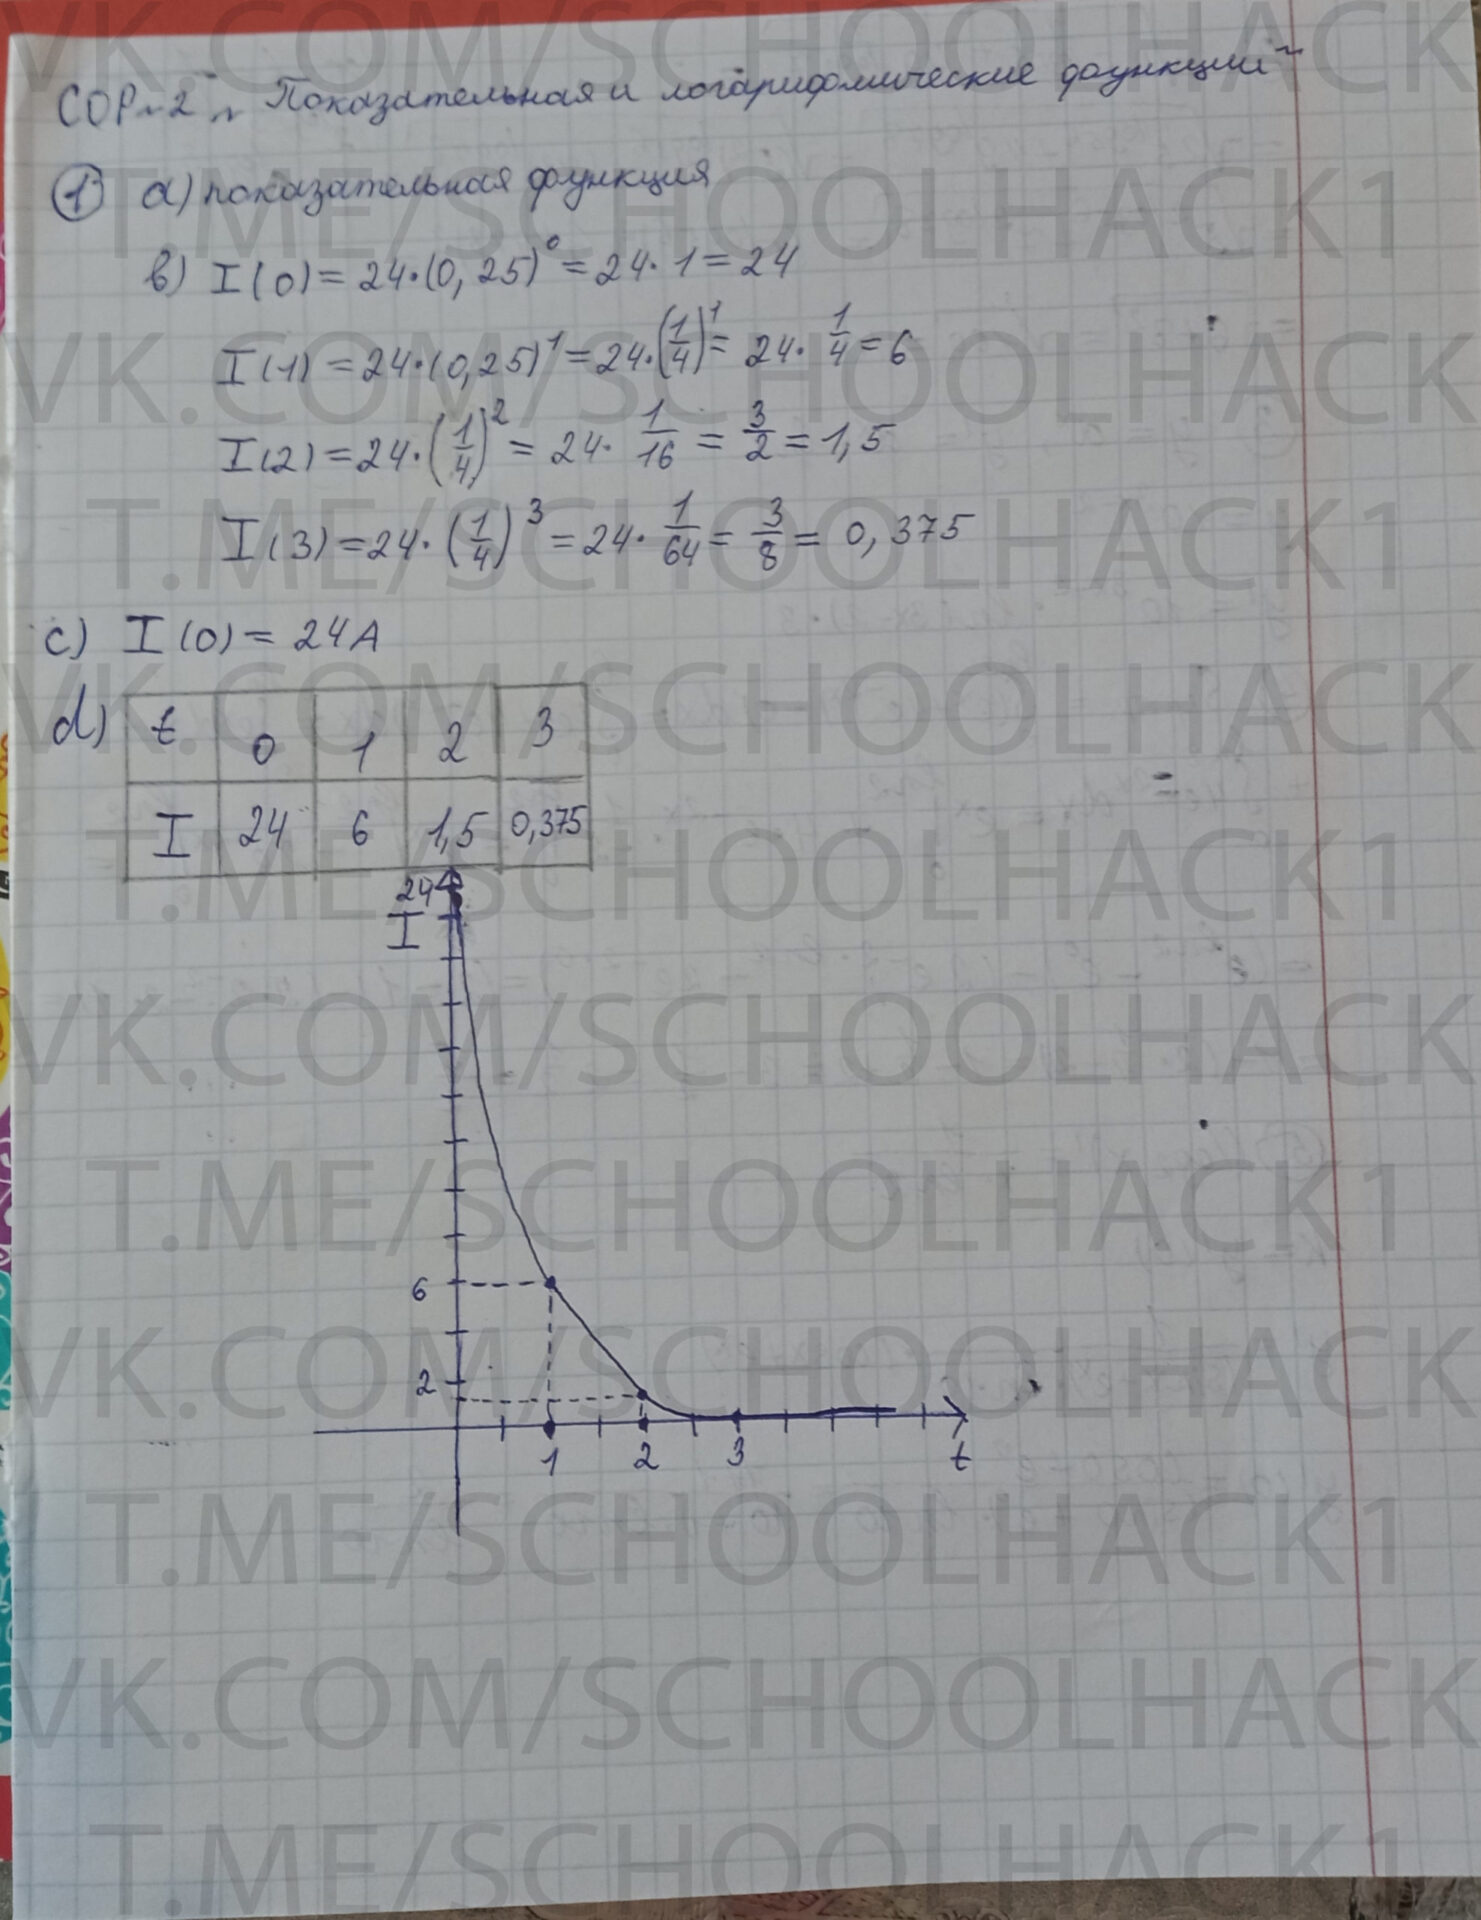 СОР~2 „Показательная и логарифмические функции"
1 a) показательная функция
b) I(0) = 24·(0,25)⁰ = 24·1 = 24
I(1) = 24·(0,25)¹ = 24·(1/4)¹ = 24·1/4 = 6
I(2) = 24·(1/4)² = 24·1/16 = 3/2 = 1,5
I(3) = 24·(1/4)³ = 24·1/64 = 3/8 = 0,375
c) I(0) = 24A
d) t 0 1 2 3
I 24 6 1,5 0,375
24
I
6
2
1 2 3 t
VK.COM/SCHOOLHACK
T.ME/SCHOOLHACK1
VK.COM/SCHOOLHACK
T.ME/SCHOOLHACK1
VK.COM/SCHOOLHACK
T.ME/SCHOOLHACK1
VK.COM/SCHOOLHACK
T.ME/SCHOOLHACK1
VK.COM/SCHOOLHACK
T.ME/SCHOOLHACK1
VK.COM/SCHOOLHACK
T.ME/SCHOOLHACK1